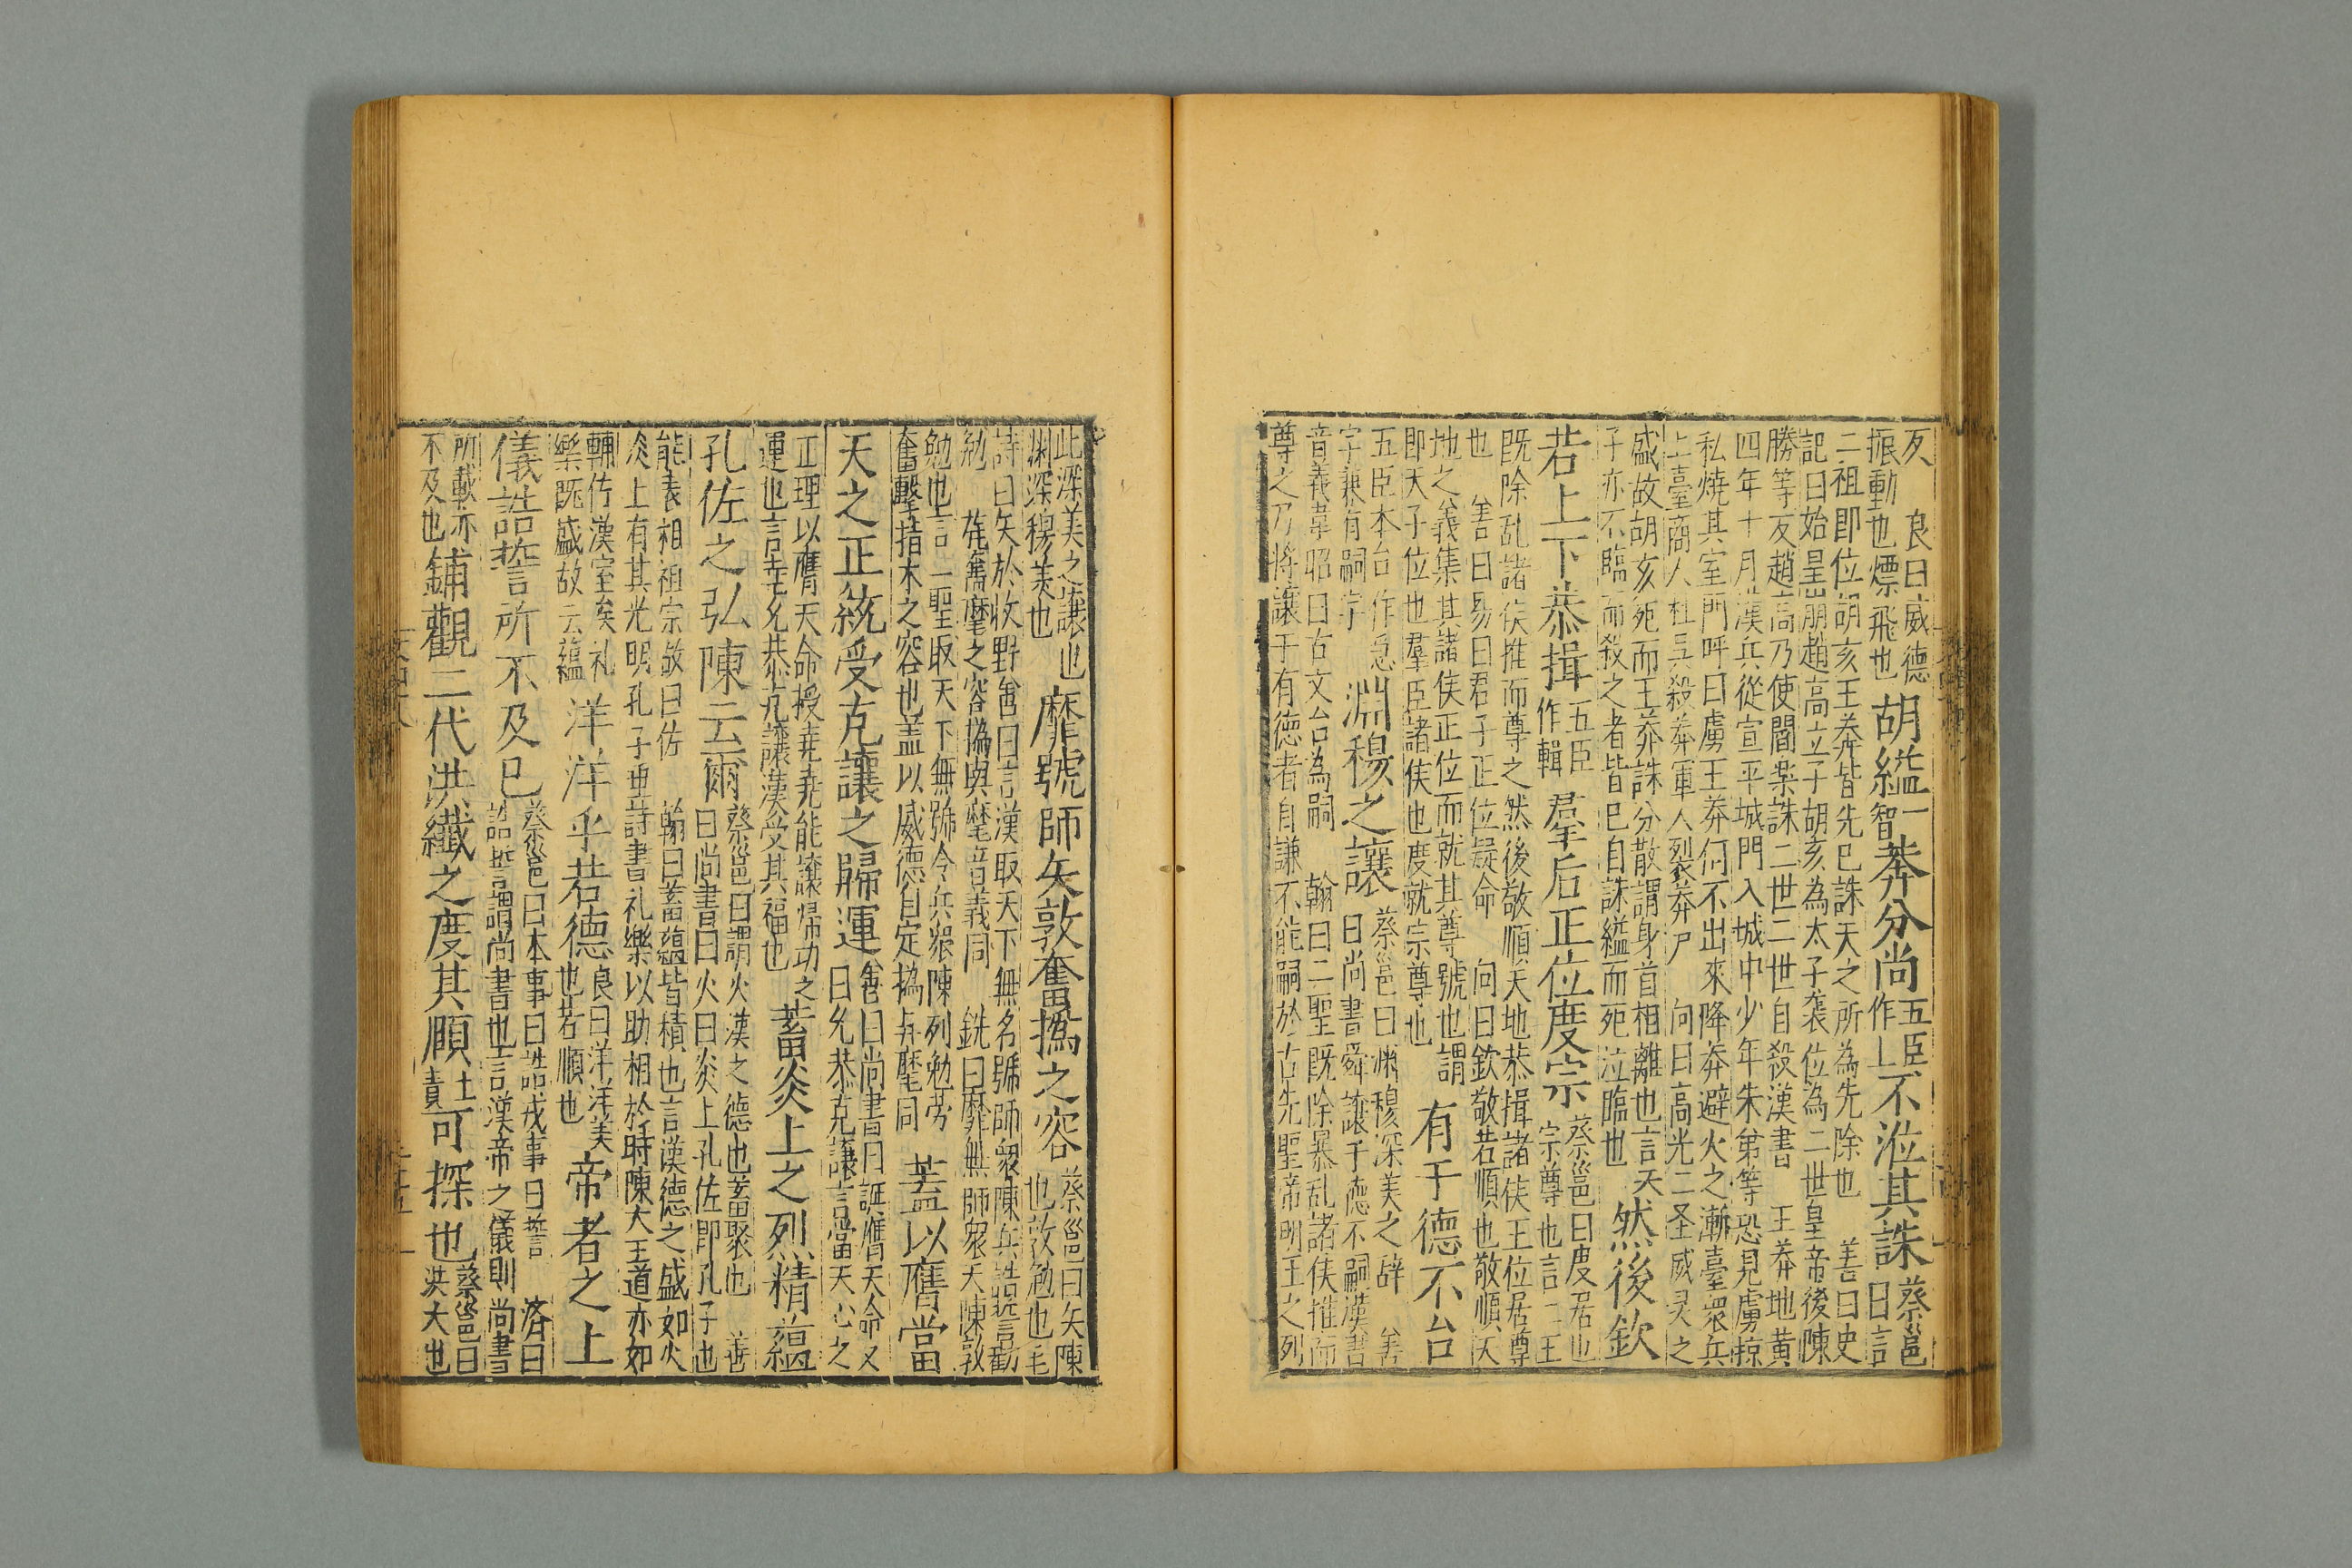 反　良曰威德
振動也熛飛也
胡縊一智莽分尚五臣作上不涖其誅蔡邕曰言
二祖即位胡亥王莽皆先已誅天之所為先除也　善曰史
記曰始皇崩趙高立子胡亥為太子襲位為二世皇帝後陳
勝等反趙高乃使閻樂誅二世二世自殺漢書　王莽地黃
四年十月漢兵從宣平城門入城中少年朱第等恐見虜掠
私燒其室門呼曰虜王莽何不出來降莽避火之漸臺眾兵
上臺商人杜吳殺莽軍人裂莽尸　向曰高光二圣威灵之
盛故胡亥死而王莽誅分散謂身首相離也言天
子亦不臨而殺之者皆已自誅縊而死涖臨也
然後欽
若上下恭揖五臣作輯羣后正位度宗蔡邕曰度居也
宗尊也言二王
既除乱諸侯推而尊之然後敬順天地恭揖諸侯王位居尊
也　善曰易曰君子正位疑命　向曰欽敬若順也敬順天
地之義集其諸侯正位而就其尊號也謂
即天子位也羣臣諸侯也度就宗尊也
有于德不台
五臣本台作怠
字兼有嗣字
淵穆之讓蔡邕曰渊穆深美之辞　善
曰尚書舜讓于德不嗣漢書
音義韋昭曰古文台為嗣　翰曰二聖既除暴乱諸侯推而
尊之乃將讓于有德者自謙不能嗣於古先聖帝明王之列
此深美之讓也
渊深穆美也
靡號師矢敦奮撝之容蔡邕曰矢陳
也敦勉也毛
詩曰矢於牧野善曰言漢取天下無名號師眾陳兵誥誓勸
勉　旄舊麾之容撝與麾音義同　銑曰靡無師眾矢陳敦
勉也言二聖取天下無號令兵眾陳列勉劳
奮擊指木之容也盖以威德自定撝与麾同
蓋以膺當
天之正統受克讓之歸運善曰尚書曰誕膺天命又
曰允恭克讓言當天心之
正理以膺天命授尭尭能讓帰功之
運也言尭允恭克讓漢受其福也
蓄炎上之烈精蘊
孔佐之弘陳云爾蔡邕曰謂火漢之德也蓄聚也　善
曰尚書曰火曰炎上孔佐即孔子也
能表相祖宗故曰佐　翰曰蓄蘊皆積也言漢德之盛如火
炎上有其光明孔子重詩書礼樂以助相於時陳大王道亦如
輔佐漢室矣礼
樂既盛故云蘊
洋洋乎若德良曰洋洋美
也若順也
帝者之上
儀誥誓所不及已蔡邕曰本事曰誥戒事曰誓　濟曰
誥誓謂尚書也言漢帝之儀則尚書
所載亦
不及也
鋪觀二代洪纖之度其賾士責可探也蔡邕曰
洪大也